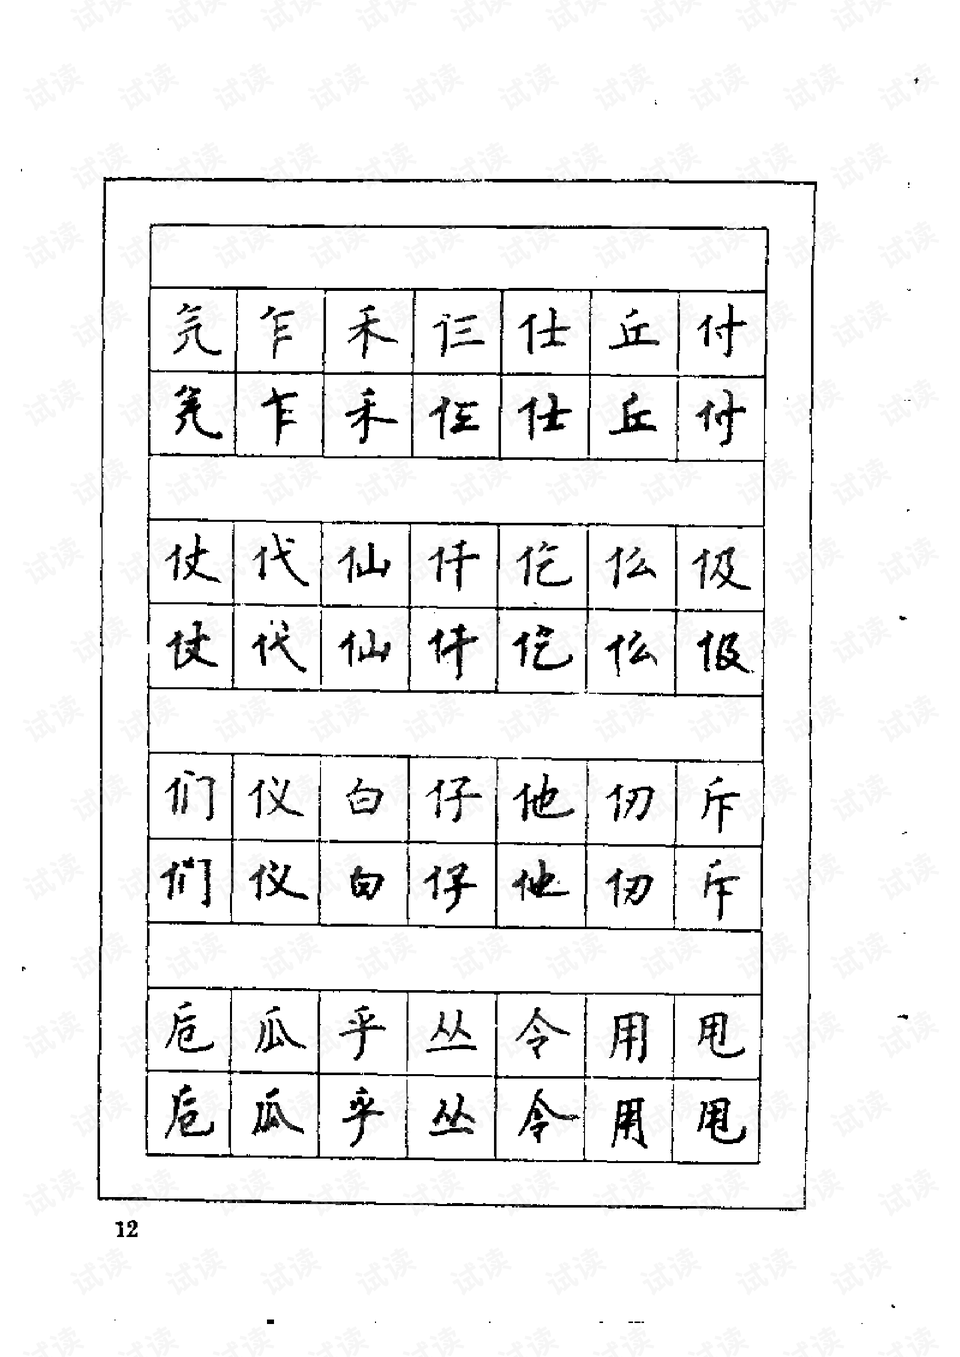 氕 乍 禾 仨 仕 丘 付
氕 乍 禾 仨 仕 丘 付
仗 代 仙 仟 仡 仫 伋
仗 代 仙 仟 仡 仫 伋
们 仪 白 仔 他 仞 斥
们 仪 白 仔 他 仞 斥
卮 瓜 乎 丛 令 用 甩
卮 瓜 乎 丛 令 用 甩
12